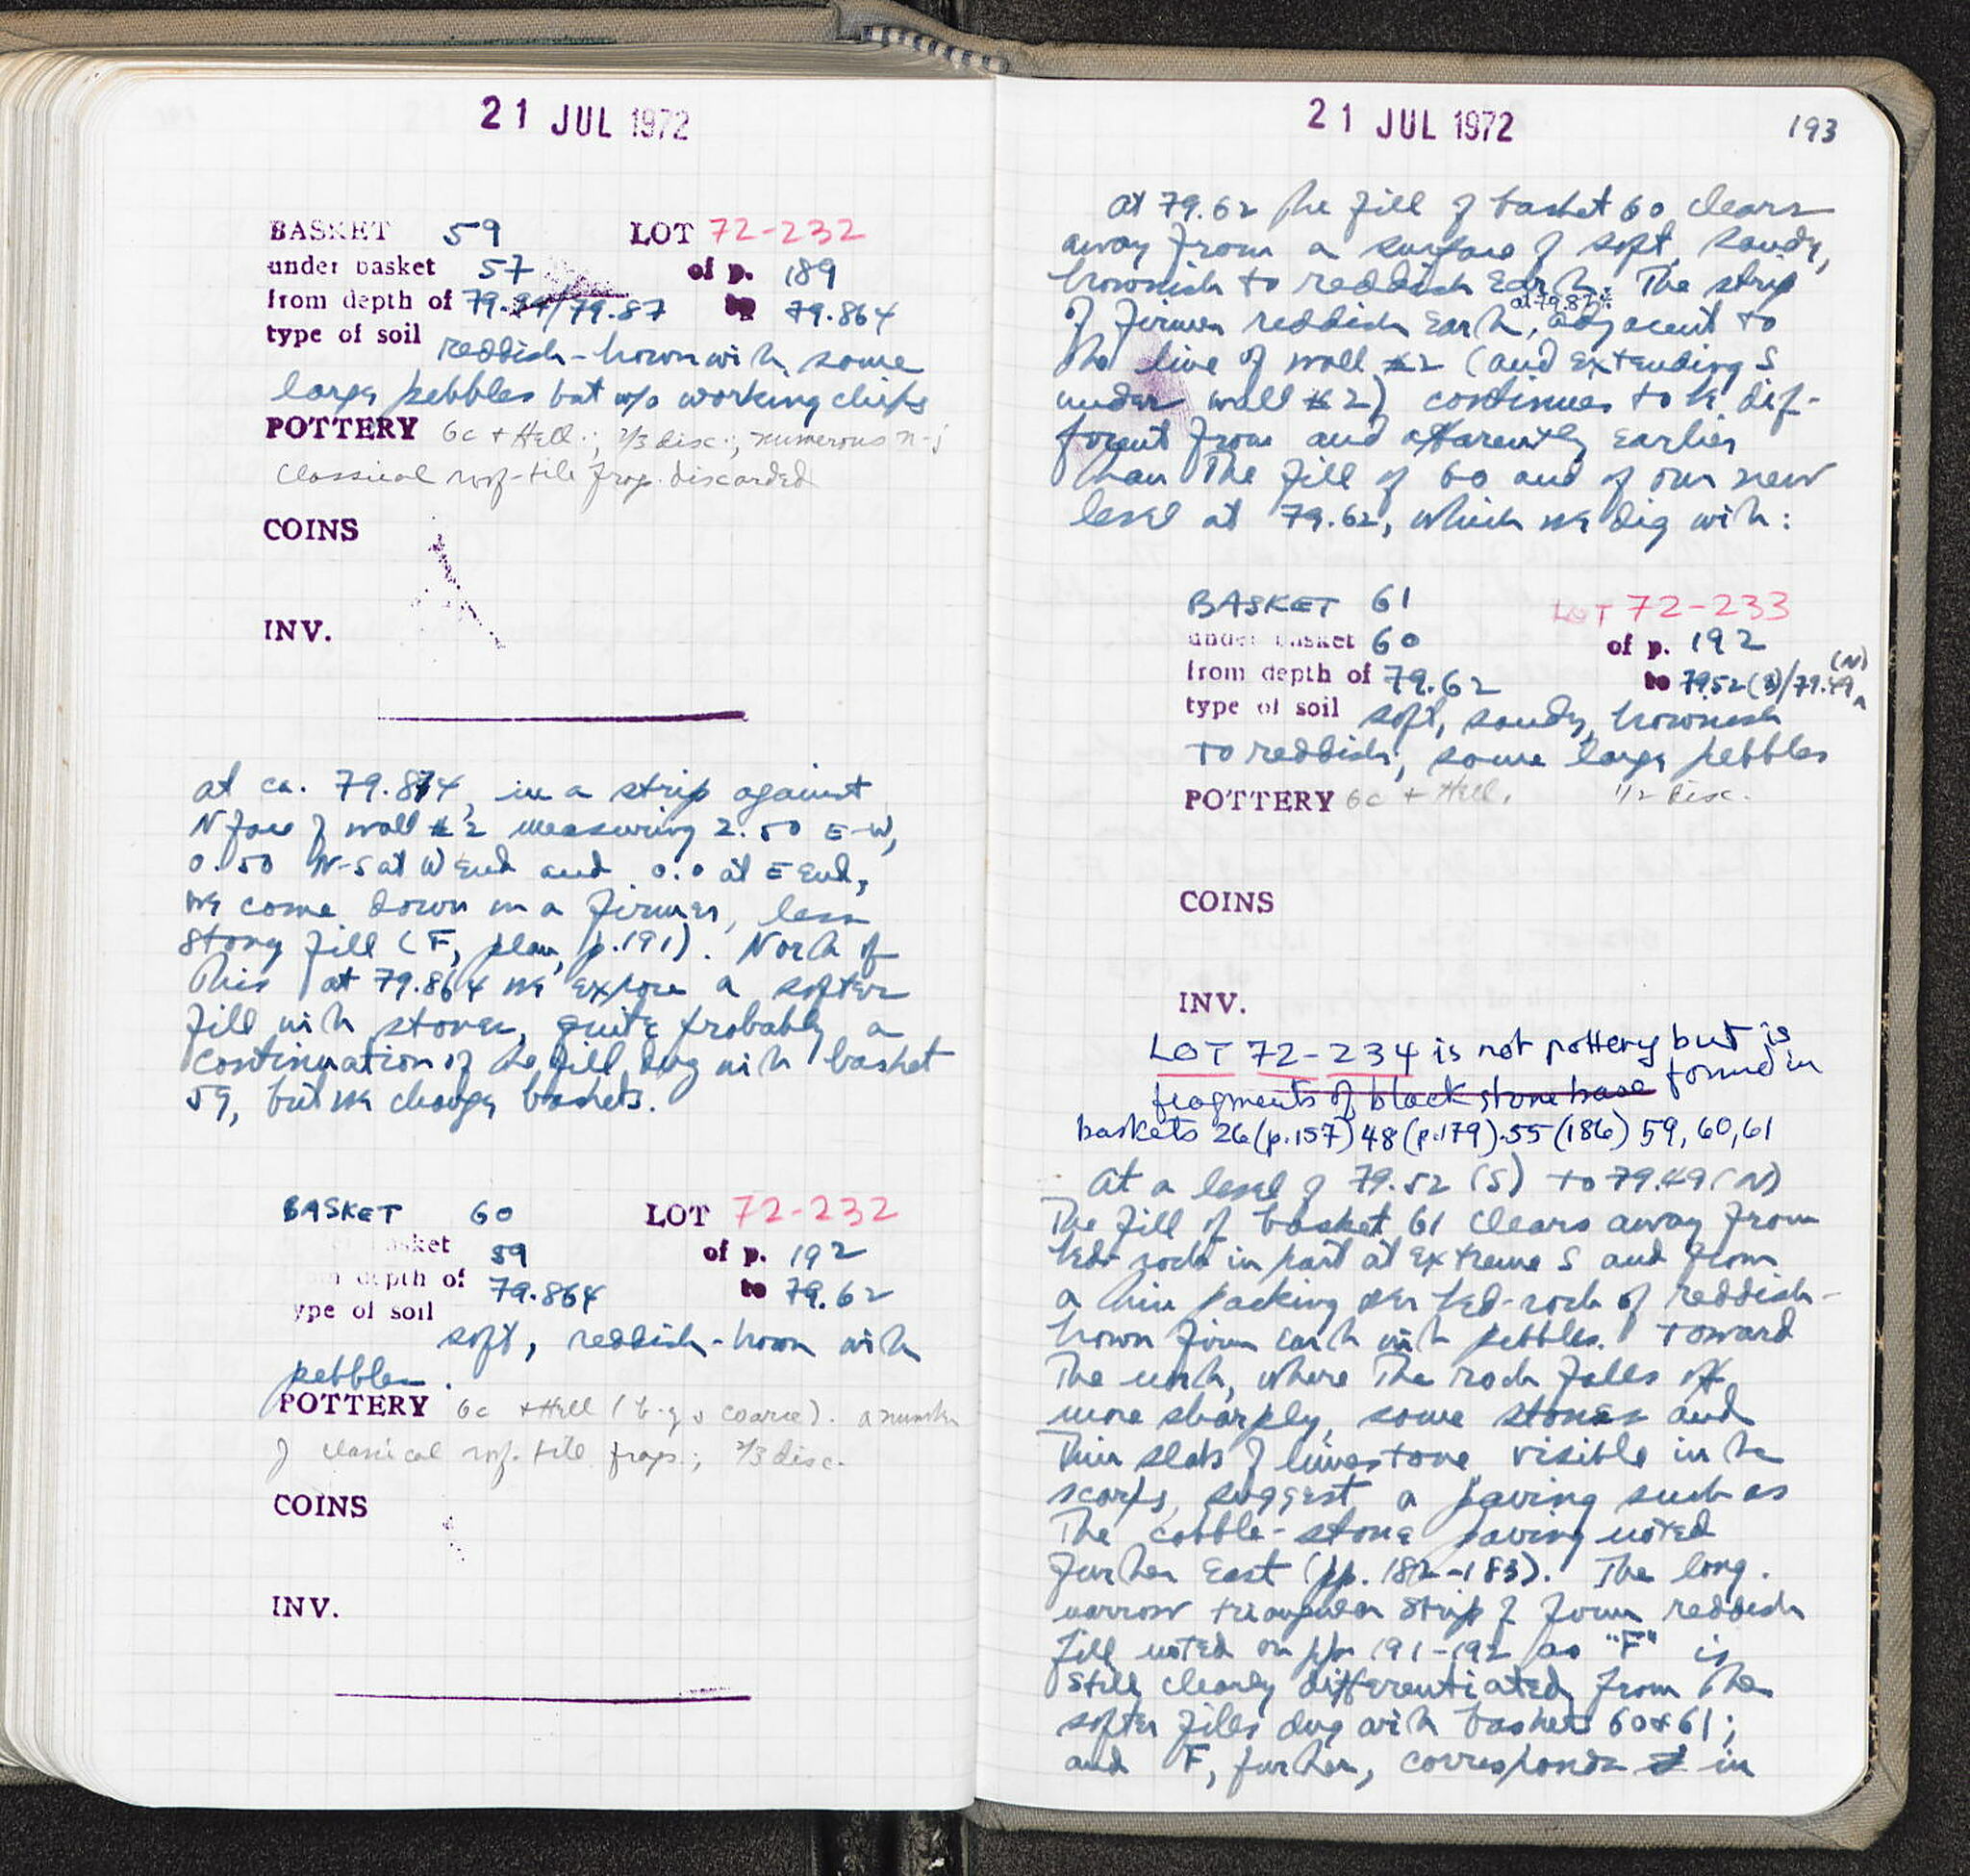 21 JUL 1972
BASKET 59 LOT 72-232
under basket 57 of p. 189
from depth of 79.94/79.87 to 79.864
type of soil reddish-brown with some
large pebbles but w/o working chips
POTTERY 6c + Hell.; 2/3 disc.; numerous n-j
classical roof-tile frag. discarded
COINS
INV.
at ca. 79.874, in a strip against
N face of wall #2 measuring 2.50 E-W,
0.50 N-S at W End and 0.0 at E End,
we come down on a firmer, less
stony fill (F, plan, p.191). North of
this at 79.864 we expose a softer
fill with stones, quite probably a
continuation of the fill dug with basket
59, but we change baskets.
BASKET 60 LOT 72-232
basket 59 of p. 192
from depth of 79.864 to 79.62
type of soil
soft, reddish-brown with
pebbles.
POTTERY 6c + Hell (b-g & coarse). a number
of classical roof-tile frags.; 2/3 disc.
COINS
INV.
21 JUL 1972 193
at 79.62 the fill of basket 60 clears
away from a surface of soft, sandy,
brownish to reddish Earth. The strip
of firmer reddish Earth, at 79.87±, adjacent to
the line of wall #2 (and Extending S
under wall #2) continues to be dif-
ferent from and apparently earlier
than the fill of 60 and of our new
level at 79.62, which we dig with:
BASKET 61 LOT 72-233
under basket 60 of p. 192
from depth of 79.62 to 79.52(S)/79.49(N)
type of soil soft, sandy, brownish
to reddish, some large pebbles
POTTERY 6c + Hell. 1/2 disc.
COINS
INV.
LOT 72-234 is not pottery but is
fragments of black stone base found in
baskets 26(p.157) 48(p.179).55(186) 59,60,61
At a level of 79.52 (S) to 79.49 (N)
The fill of basket 61 clears away from
bed-rock in part at extreme S and from
a thin packing over bed-rock of reddish-
brown firm earth with pebbles. Toward
The north, where The rock falls off
more sharply, some stones and
Thin slabs of limestone visible in the
scarps, suggest a paving such as
The cobble-stone paving noted
further East (pp. 182-183). The long
narrow triangular strip of firm reddish
fill noted on pp. 191-192 as "F" is
still clearly differentiated from the
softer fills dug with baskets 60 & 61;
and F, further, corresponds in